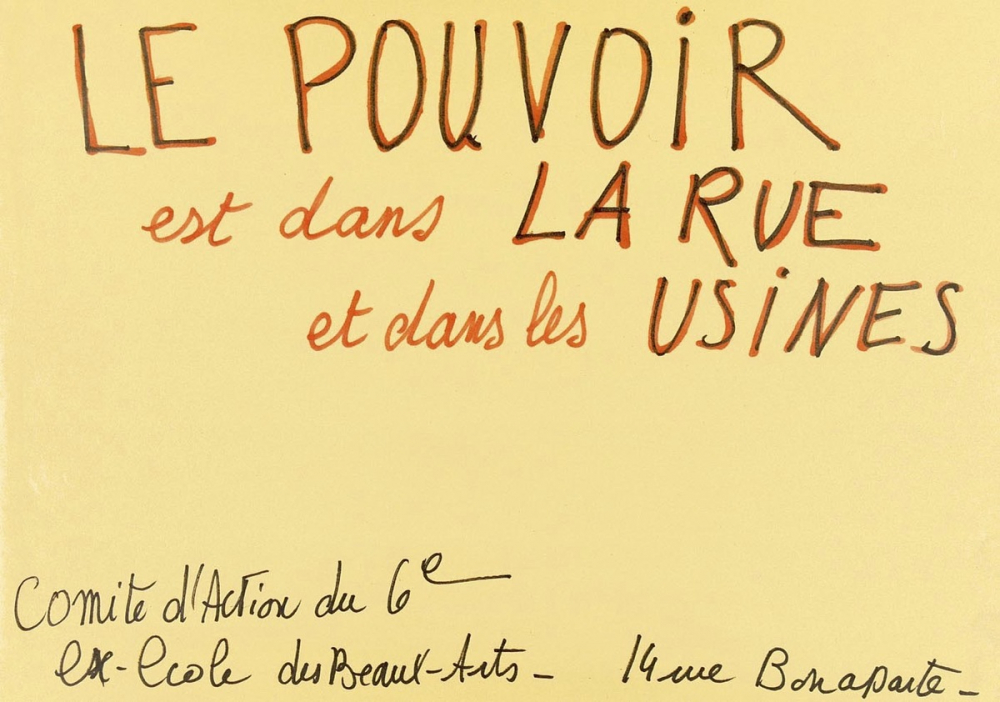 LE POUVOIR
est dans LA RUE
et dans les USINES
Comite d'Action du 6e
ex-Ecole des Beaux-Arts - 14 rue Bonaparte -